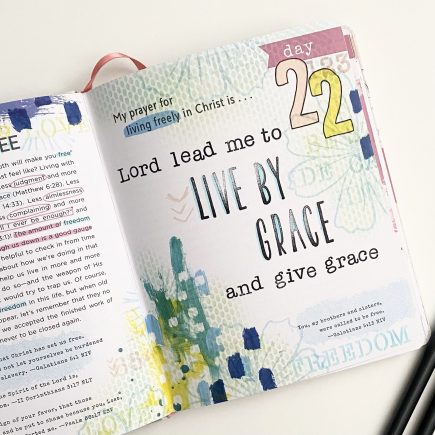 EE
LOVE
oth will make you free"
st feel like? Living with
less judgment and more
ace (Matthew 6:28). Less
14:33). Less aimlessness
complaining and more
ll I ever be enough?" and
5:1)! The amount of freedom
gh us down is a good gauge
helpful to check in from time
about how we're doing in that
help us live in more and more
do so—and the weapon of His
would try to trap us. Of course,
freedom in this life, but when old
appear, let's remember that they no
we accepted the finished work of
never to be closed again.
hat Christ has set us free.
et yourselves be burdened
slavery. —Galatians 5:1 NIV
he Spirit of the Lord is,
e. —II Corinthians 3:17 NLT
ign of your favor, that those
and be put to shame because you, Lord,
forted me. —Psalm 86:17 ESV
day
22
My prayer for
living freely in Christ is . . .
Lord lead me to
LIVE BY
GRACE
and give grace
You, my brothers and sisters,
were called to be free.
—Galatians 5:13 NIV
FREEDOM